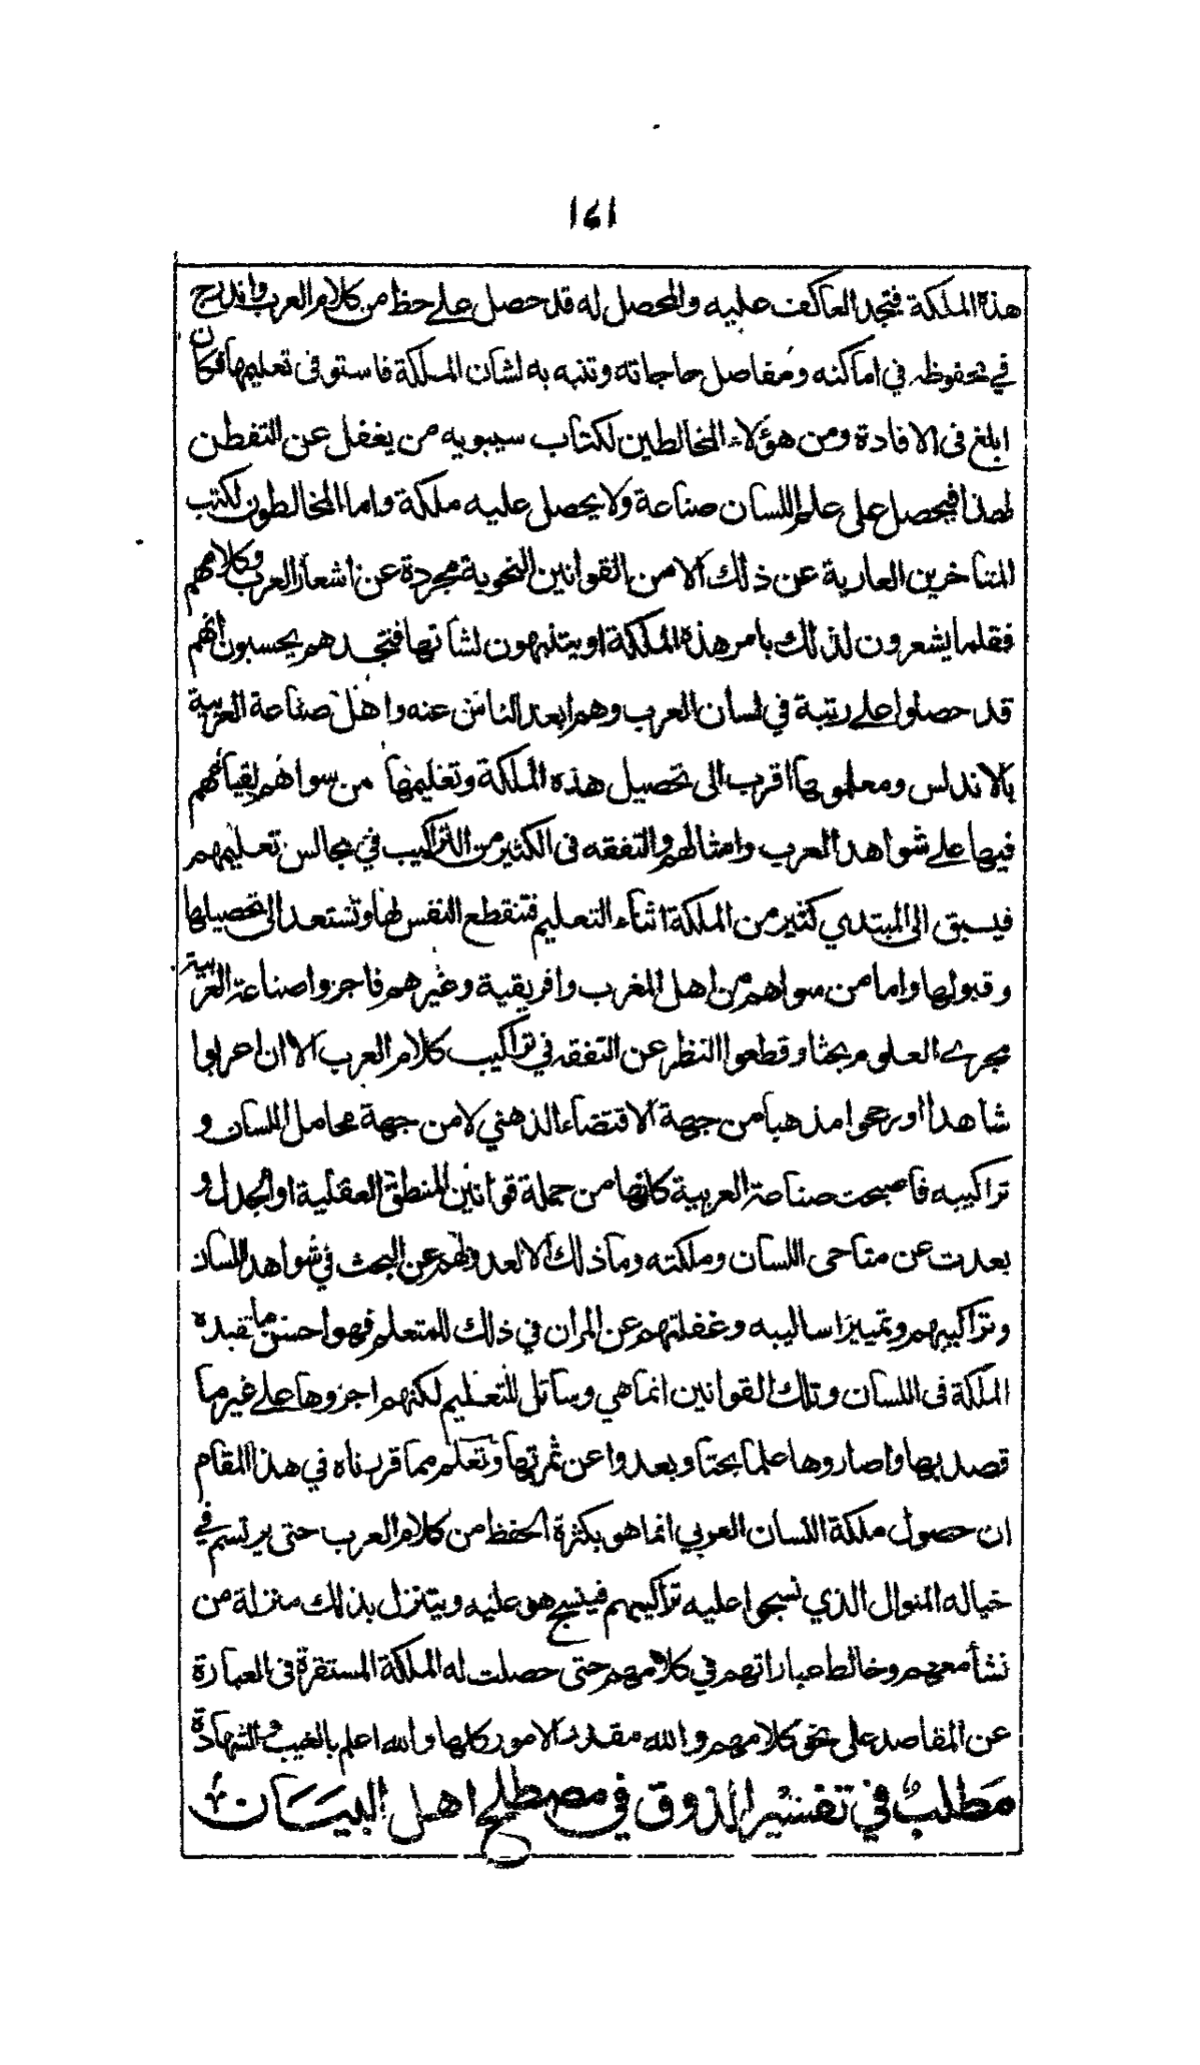 ١٤١
هذه الملكة فتجد العاكف عليه والمحصل له قد حصل على حظ من كلام العرب واندرج
في محفوظه في اماكنه ومفاصل حاجاته وتنبه به لشان الملكة فاستوفى تعليمها فكان
ابلغ فى الافادة ومن هؤلاء المخالطين لكتاب سيبويه من يغفل عن التفطن
لهذا فيحصل على علم اللسان صناعة ولا يحصل عليه ملكة واما المخالطون لكتب
المتاخرين العارية عن ذلك الا من القوانين النحوية مجردة عن اشعار العرب وكلامهم
فقلما يشعرون لذلك بامر هذه الملكة او يتنبهون لشانها فتجدهم يحسبون انهم
قد حصلوا على رتبة في لسان العرب وهم ابعد الناس عنه واهل صناعة العربية
بالاندلس ومعلموها اقرب الى تحصيل هذه الملكة وتعليمها من سواهم لقيامهم
فيها على شواهد العرب وامثالهم والتفقه فى الكثير من التراكيب في مجالس تعليمهم
فيسبق الى المبتدي كثير من الملكة اثناء التعليم فتنقطع النفس لها وتستعد الى تحصيلها
وقبولها واما من سواهم من اهل المغرب وافريقية وغيرهم فاجروا صناعة العربية
مجرے العلوم بحثا وقطعوا النظر عن التفقه في تراكيب كلام العرب الا ان اعربوا
شاهدا او رجحوا مذهبا من جهة الاقتضاء الذهني لا من جهة محامل اللسان و
تراكيبه فاصبحت صناعة العربية كانها من جملة قوانين المنطق العقلية او الجدل و
بعدت عن مناحى اللسان وملكته وما ذلك الا لعدولهم عن البحث في شواهد اللسان
وتراكيبهم وتمييز اساليبه وغفلتهم عن المران في ذلك للمتعلم فهو احسن ما تفيده
الملكة فى اللسان وتلك القوانين انما هي وسائل للتعليم لكنهم اجروها على غير ما
قصد بها واصاروها علما بحتا وبعدوا عن ثمرتها وتعلم مما قررناه في هذا المقام
ان حصول ملكة اللسان العربي انما هو بكثرة الحفظ من كلام العرب حتى يرتسم في
خياله المنوال الذي نسجوا عليه تراكيبهم فينسج هو عليه ويتنزل بذلك منزلة من
نشأ معهم وخالط عباراتهم في كلامهم حتى حصلت له الملكة المستقرة فى العبارة
عن المقاصد على نحو كلامهم والله مقدر الامور كلها والله اعلم بالغيب والشهادة
مَطلبٌ في تفسير الذوق في مصطلح اهل البيَان